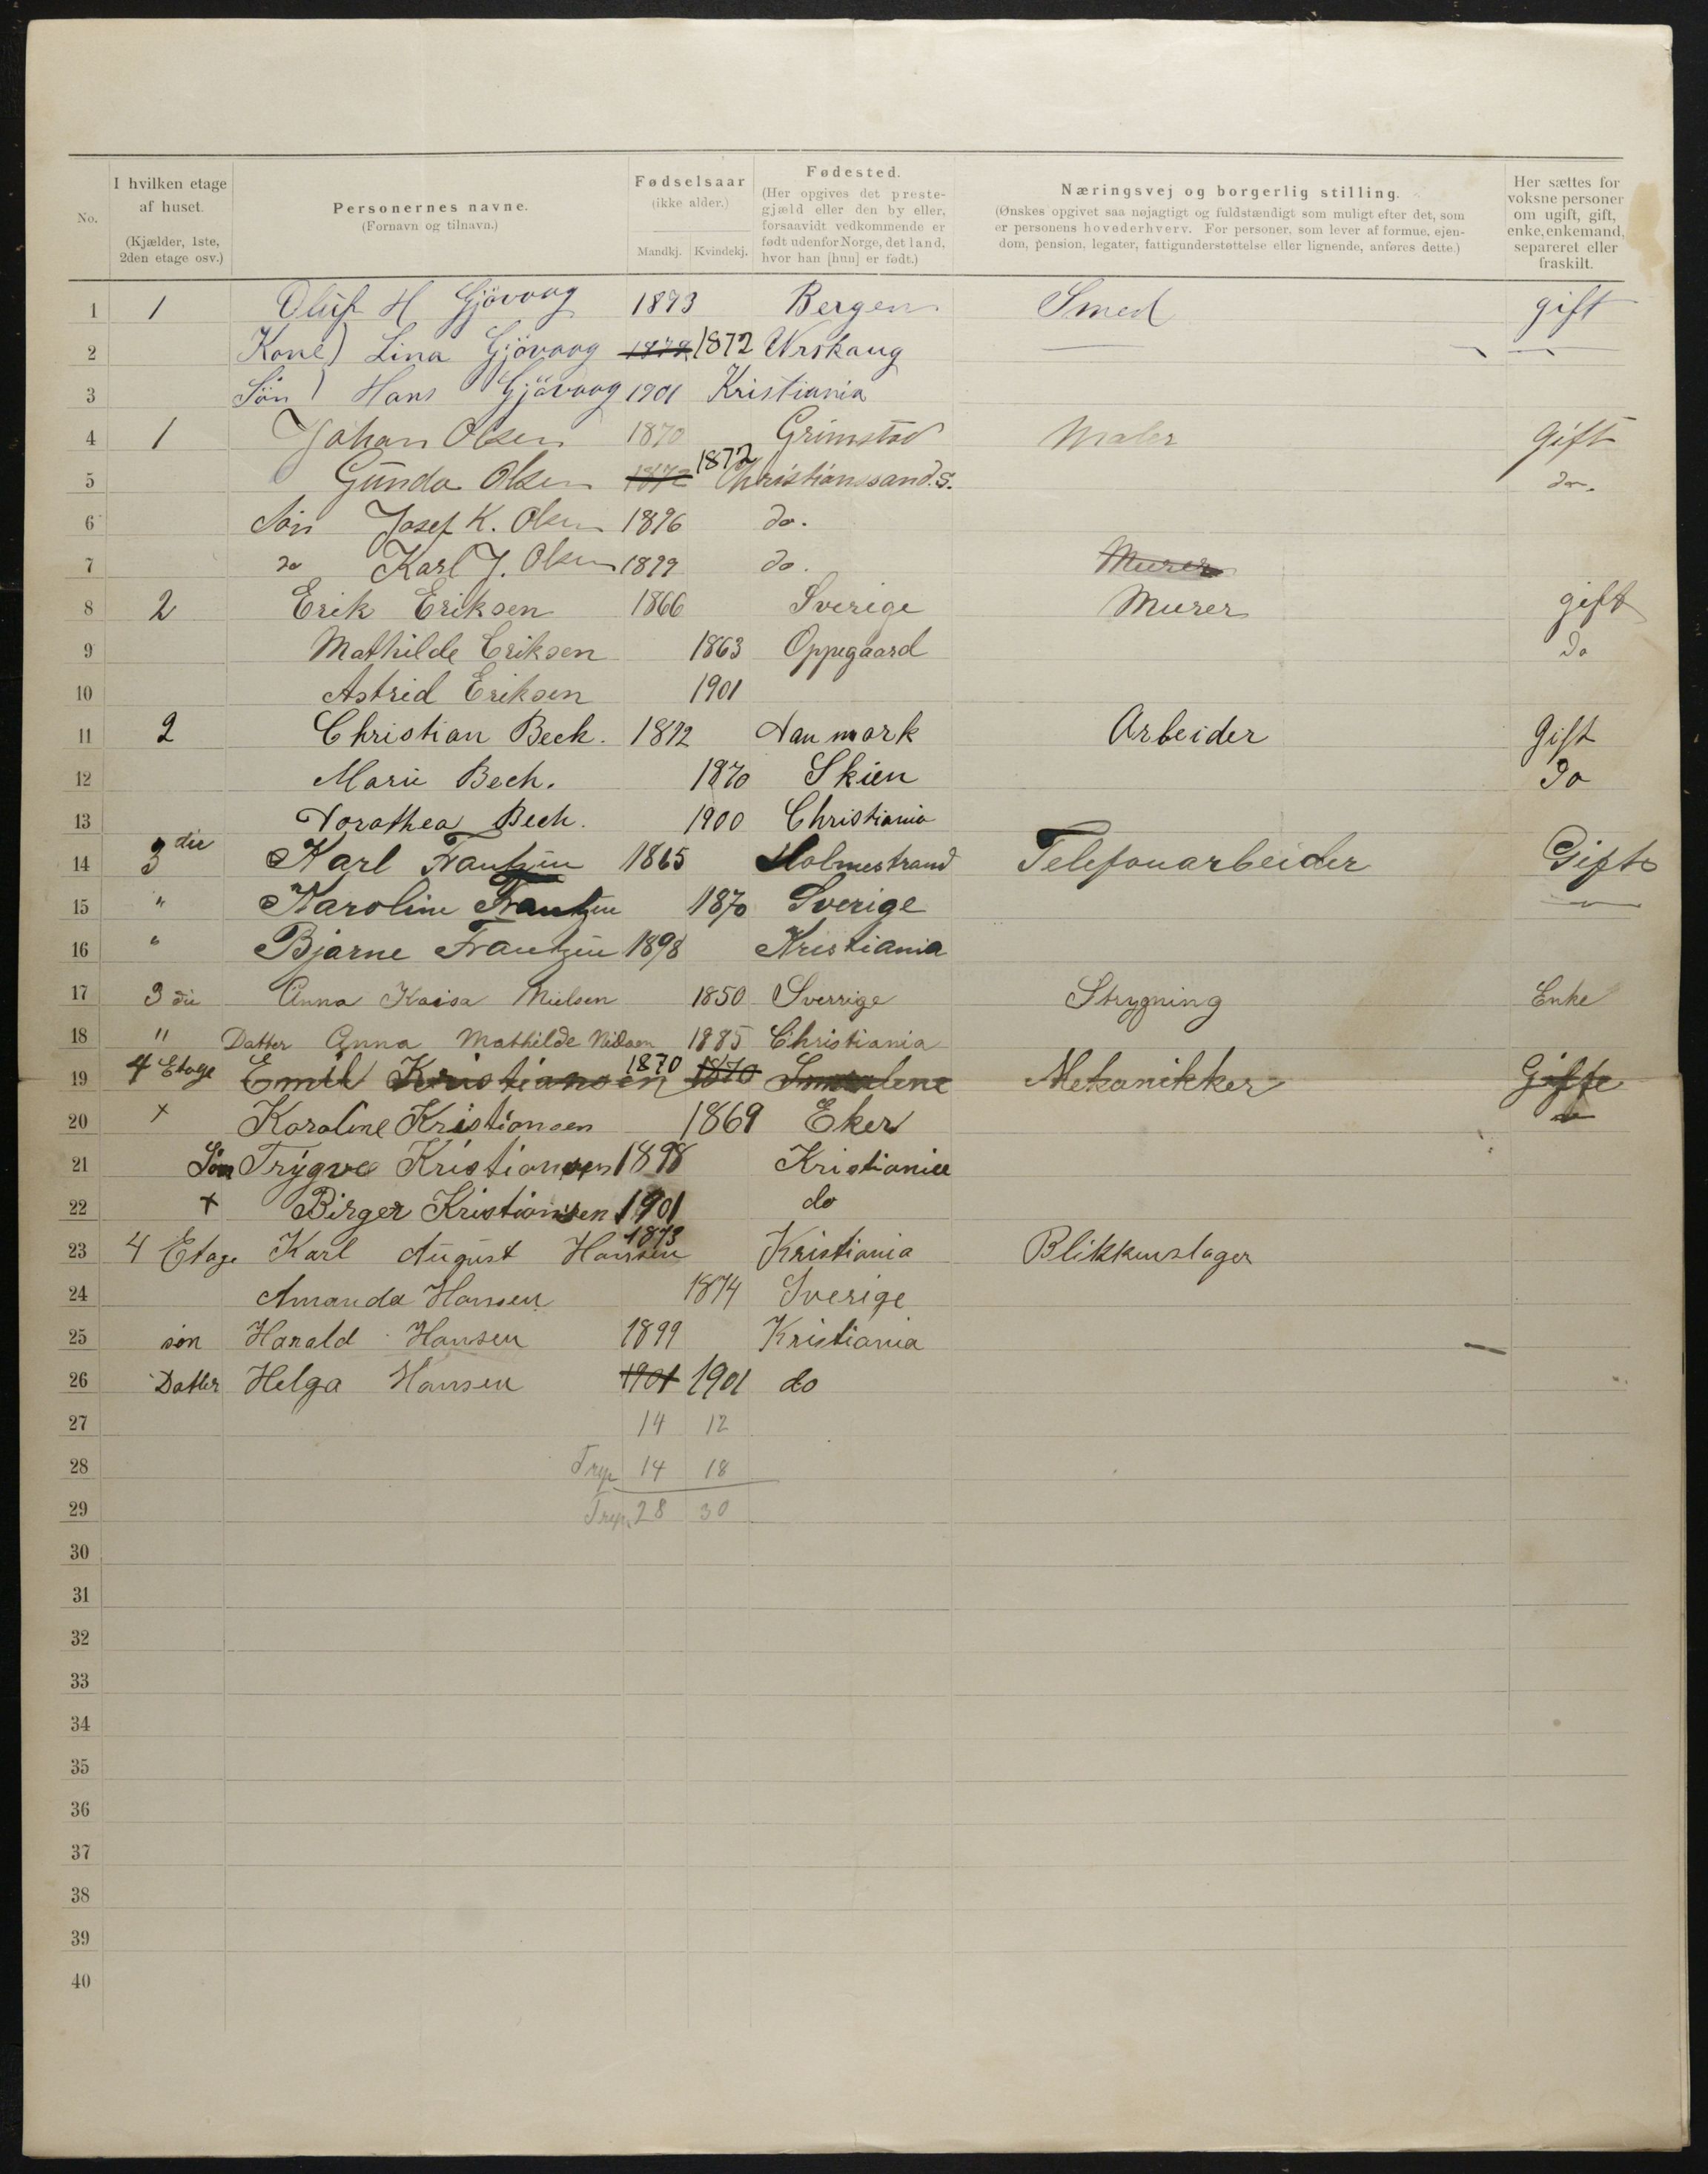 No.
I hvilken etage af huset. (Kjælder, 1ste, 2den etage osv.)
Personernes navne. (Fornavn og tilnavn.)
Fødselsaar (ikke alder.) Mandkj. Kvindekj.
Fødested. (Her opgives det prestegjæld eller den by eller, forsaavidt vedkommende er født udenfor Norge, det land, hvor han [hun] er født.)
Næringsvej og borgerlig stilling. (Ønskes opgivet saa nøjagtigt og fuldstændigt som muligt efter det, som er personens hovederhverv. For personer, som lever af formue, ejendom, pension, legater, fattigunderstøttelse eller lignende, anføres dette.)
Her sættes for voksne personer om ugift, gift, enke, enkemand, separeret eller fraskilt.
1 1 Oluf H Gjövaag 1873 Bergen Smed gift
2 Kone) Lina Gjövaag 1872 1872 Urskaug
3 Sön) Hans Gjövaag 1901 Kristiania
4 1 Johan Olsen 1870 Grimstad Maler Gift
5 Gunda Olsen 1872 1872 Christianssand.S. do.
6 Søn Josef K. Olsen 1896 do.
7 do Karl J. Olsen 1899 do. Murer
8 2 Erik Eriksen 1866 Sverige Murer gift
9 Mathilde Eriksen 1863 Oppegaard do
10 Astrid Eriksen 1901
11 2 Christian Beck. 1872 Danmark Arbeider Gift
12 Marie Bech. 1870 Skien Do
13 Dorothea Bech. 1900 Christiania
14 3die Karl Frantzen 1865 Holmestrand Telefonarbeider Gift
15 " Karoline Frantzen 1870 Sverige
16 " Bjarne Frantzen 1898 Kristiania
17 3die Anna Kaisa Nielsen 1850 Sverrige Strygning Enke
18 " Datter Anna Mathilde Nielsen 1885 Christiania
19 4 Etage Emil Kristiansen 1870 1870 Smaalene Mekanikker Gifte
20 + Karoline Kristiansen 1869 Eker
21 Søn Trygve Kristiansen 1898 Kristiania
22 + Birger Kristiansen 1901 do
23 4 Etage Karl August Hansen 1873 Kristiania Blikkenslager
24 Amanda Hansen 1874 Sverige
25 søn Harald Hansen 1899 Kristiania
26 Datter Helga Hansen 1901 1901 do
27 14 12
28 14 18
29 28 30
30
31
32
33
34
35
36
37
38
39
40